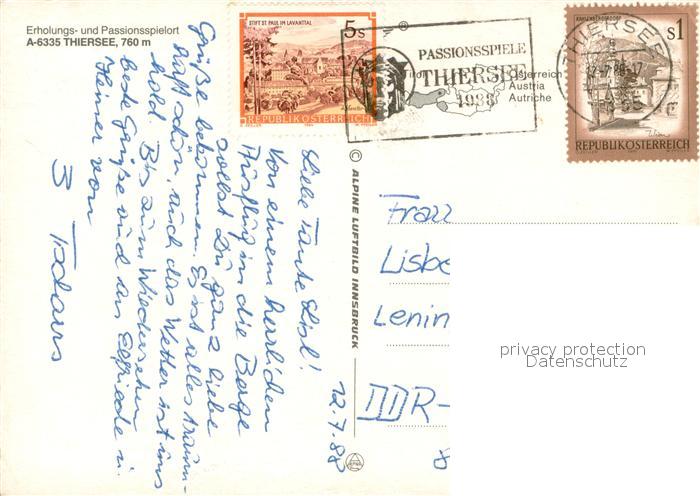 Erholungs- und Passionsspielort
A-6335 THIERSEE, 760 m
STIFT ST. PAUL IM LAVANTTAL
5s
REPUBLIK ÖSTERREICH
PASSIONSSPIELE
THIERSEE
1988
Österreich
Austria
Autriche
THIERSEE
s1
REPUBLIK ÖSTERREICH
12.7.88
Liebe Tante Lisl!
Von einem herrlichen
Ausflug in die Berge
sollst Du ganz liebe
Grüße bekommen. Es ist alles traum-
haft schön, auch das Wetter ist uns
hold. Bis zum Wiedersehen
beste Grüße und an Elfriede u.
Heiner von
3
© ALPINE LUFTBILD INNSBRUCK
Frau
Lisbe
Lenin
DDR-
8
privacy protection
Datenschutz